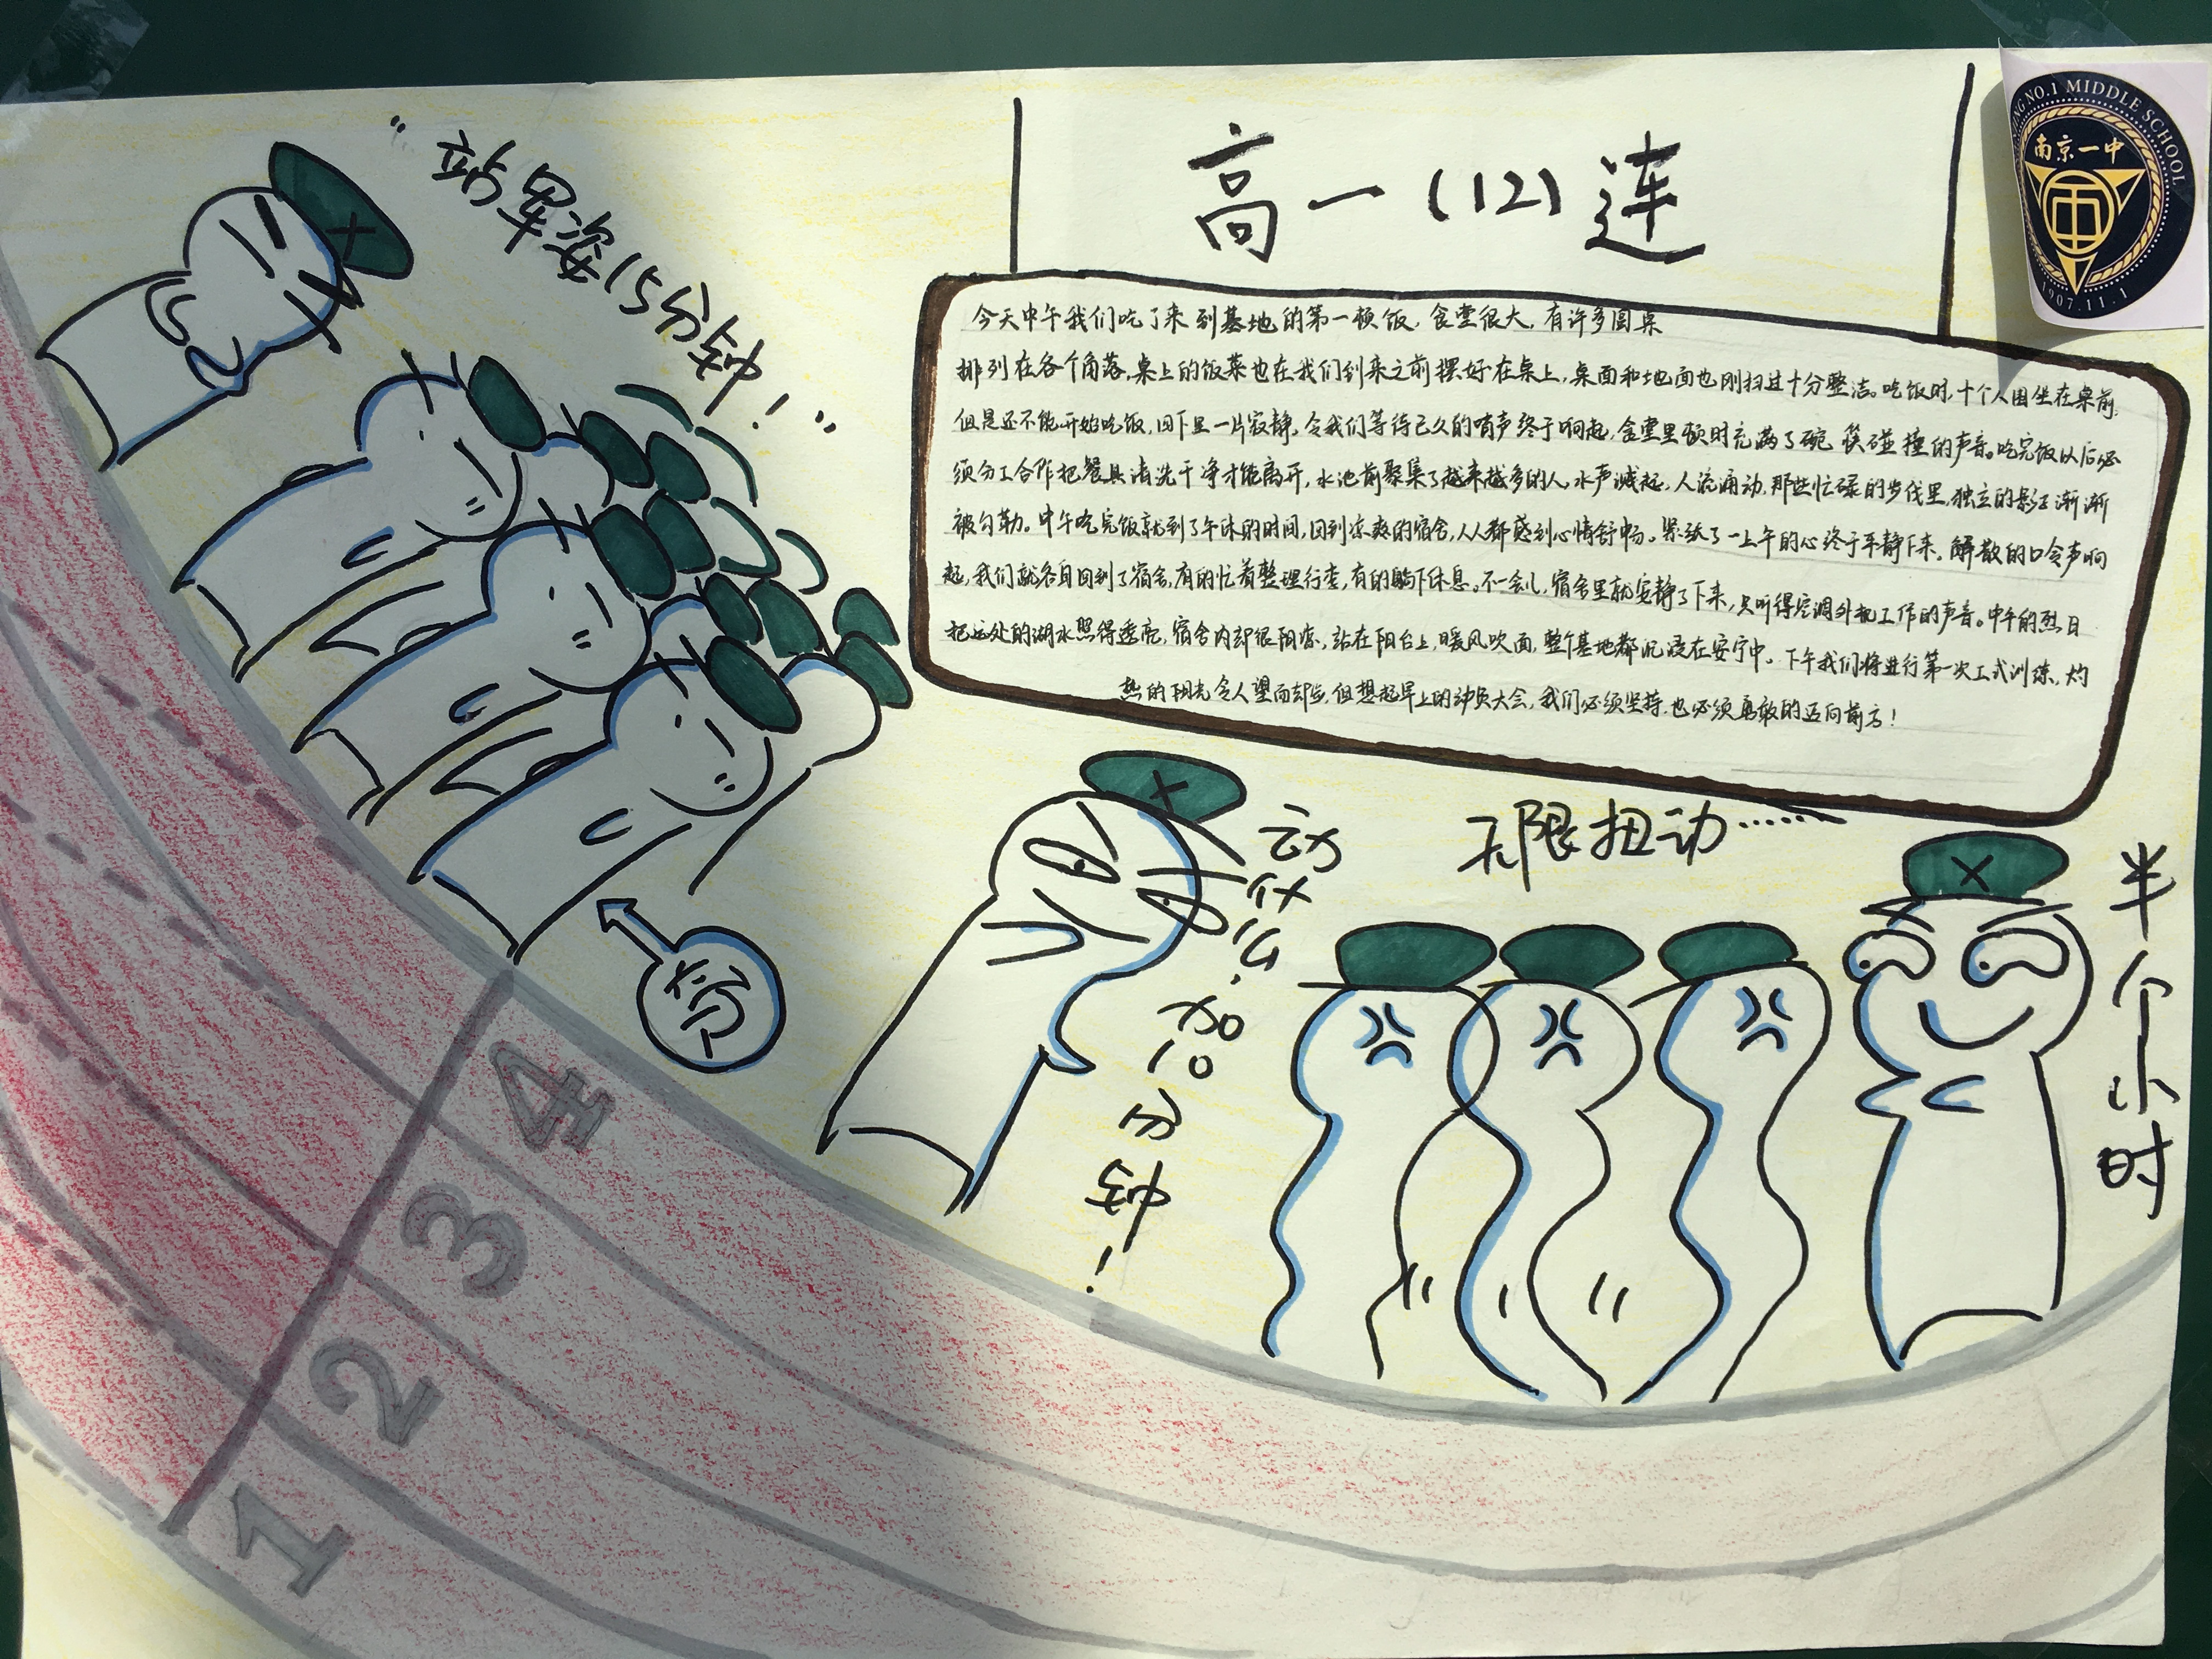 "站军姿15分钟！"
高一(12)连
NG NO.1 MIDDLE SCHOOL
南京一中
1907.11.1
今天中午我们吃了来到基地的第一顿饭，食堂很大，有许多圆桌
排列在各个角落，桌上的饭菜也在我们到来之前摆好在桌上，桌面和地面也刚扫过十分整洁。吃饭时，十个人围坐在桌前，
但是还不能开始吃饭，回下里一片寂静。令我们等待已久的哨声终于响起，食堂里顿时充满了碗筷碰撞的声音。吃完饭以后必
须分工合作把餐具清洗干净才能离开，水池前聚集了越来越多的人，水声减起，人流涌动，那些忙碌的步伐里，独立的影子渐渐
被勾勒。中午吃完饭就到了午休的时间，回到凉爽的宿舍，人人都感到心情舒畅。紧张了一上午的心终于平静下来。解散的口令声响
起，我们就各自回到了宿舍，有的忙着整理行李，有的躺下休息。不一会儿，宿舍里就安静了下来，只听得空调外机工作的声音。中午的烈日
把远处的湖水照得透亮，宿舍内却很阴凉，站在阳台上，暖风吹面，整个基地都沉浸在安宁中。下午我们将进行第一次正式训练，灼
热的阳光令人望而却步，但想起早上的动员大会，我们必须坚持，也必须勇敢的迈向前方！
动什么.
加10分钟！
无限扭动……
半个小时
4
3
2
1